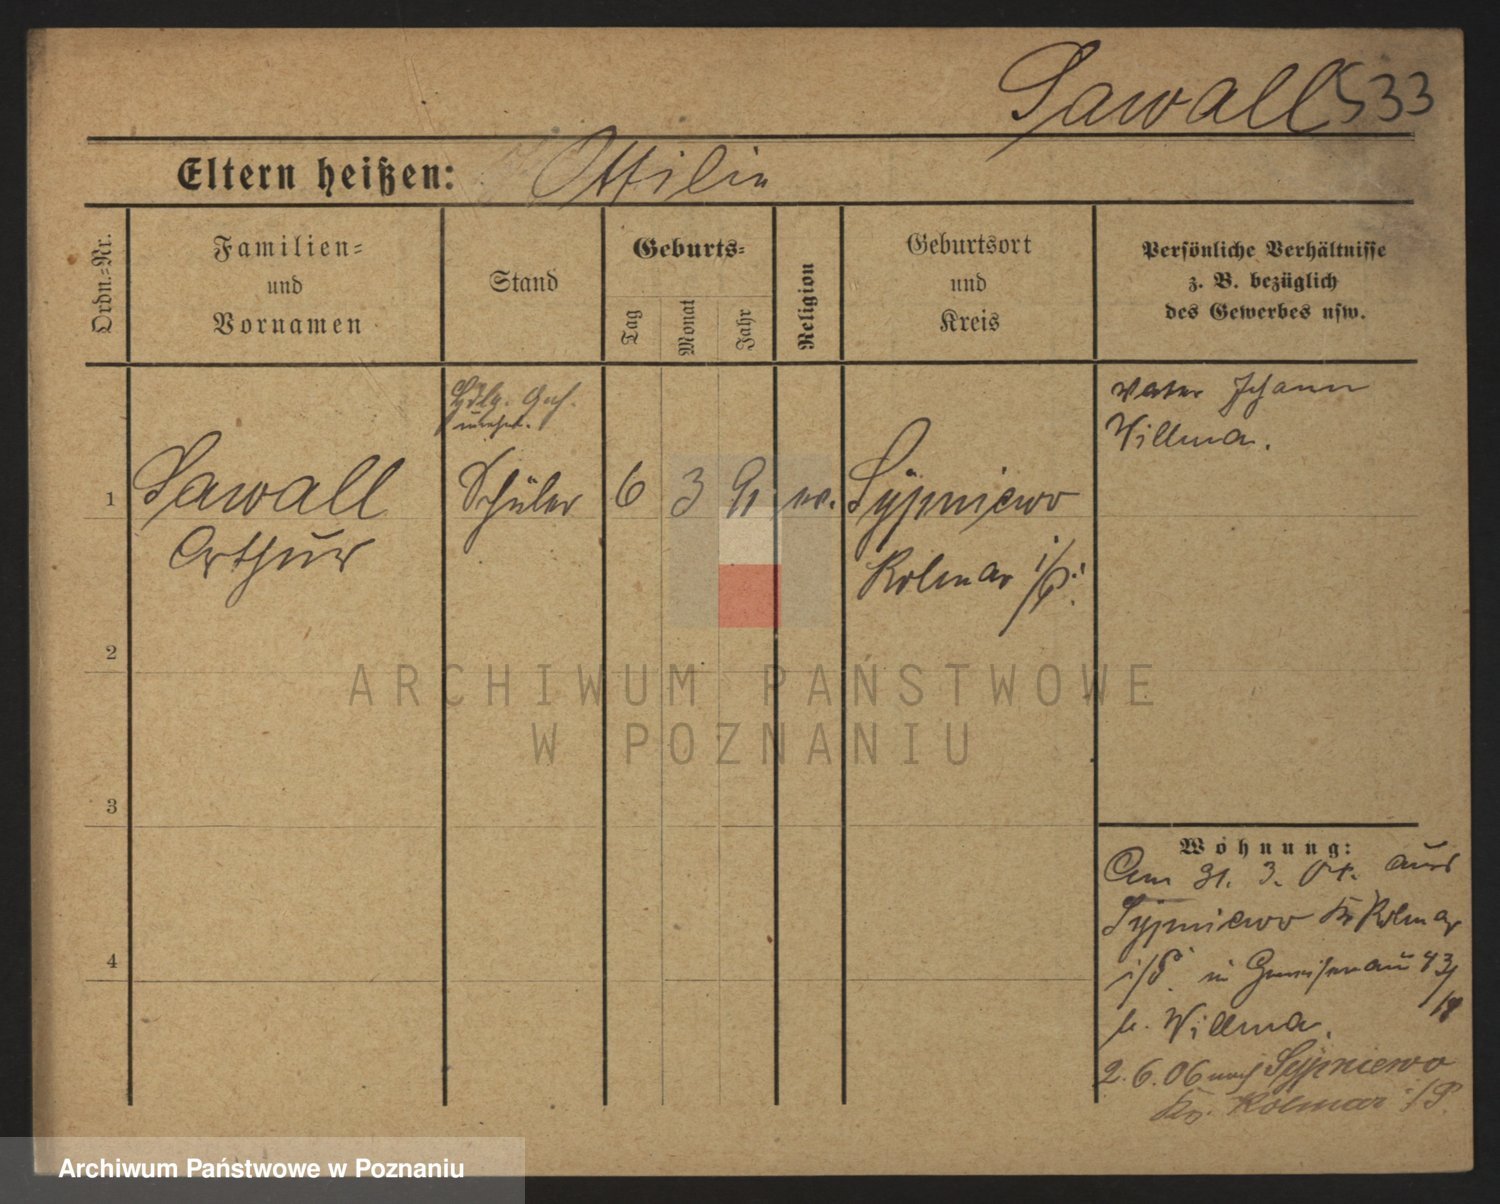 Sawall 533
Eltern heißen: Ottilie
Ordn.=Nr.
Familien=
und
Vornamen
Stand
Geburts=
Tag
Monat
Jahr
Religion
Geburtsort
und
Kreis
Persönliche Verhältnisse
z. B. bezüglich
des Gewerbes usw.
Vater Johann
Willma.
1
Sawall
Arthur
Schüler
6
3
91
ev.
Sypniewo
Kolmar i/P.
2
3
4
Wohnung:
Am 31. 3. 04. aus
Sypniewo Kr Kolmar
i/P. in Gneisenau
b. Willma.
2.6.06 nach Sypniewo
Kr. Kolmar i/P.
ARCHIWUM PAŃSTWOWE
W POZNANIU
Archiwum Państwowe w Poznaniu